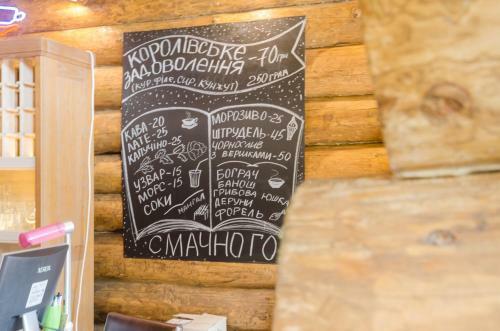 КОРОЛІВСЬКЕ
ЗАДОВОЛЕННЯ -70 грн
(КУР. ФІЛЕ, СИР, КУНЖУТ) 250 ГРАМ
КАВА-20
ЛАТЕ-25
КАПУЧІНО-25
УЗВАР-15
МОРС-15
СОКИ
МАНГАЛ
МОРОЗИВО-25
ШТРУДЕЛЬ-45
ЧОРНОСЛИВ
З ВЕРШКАМИ-50
БОГРАЧ
БАНОШ
ГРИБОВА ЮШКА
ДЕРУНИ
ФОРЕЛЬ
СМАЧНОГО
XEROX